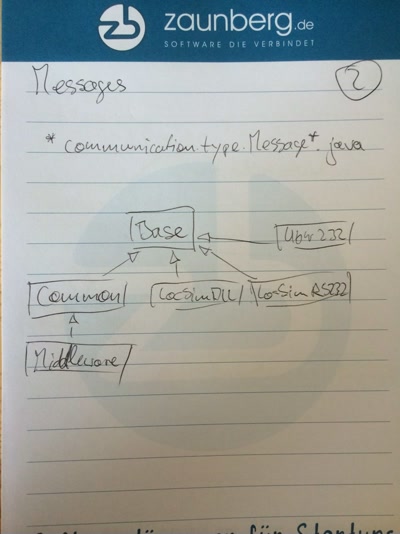 zaunberg.de
SOFTWARE DIE VERBINDET
Messages
2
*communication.type.Message*.java
Base
Uhr232
Common
LocSimDLL
LocSimRS232
Middleware
für Startups